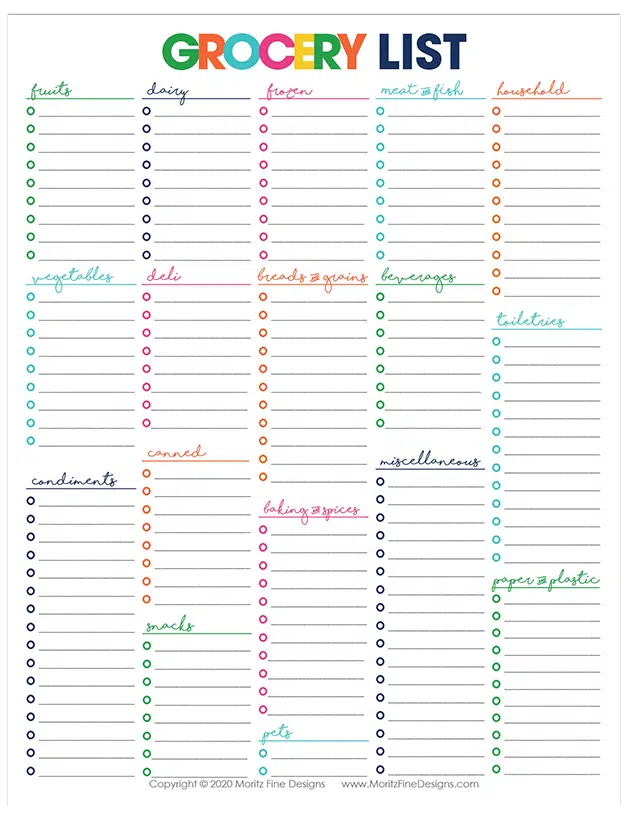 GROCERY LIST
fruits
dairy
frozen
meat & fish
household
vegetables
deli
breads & grains
beverages
toiletries
canned
miscellaneous
condiments
baking & spices
paper & plastic
snacks
pets
Copyright © 2020 Moritz Fine Designs www.MoritzFineDesigns.com